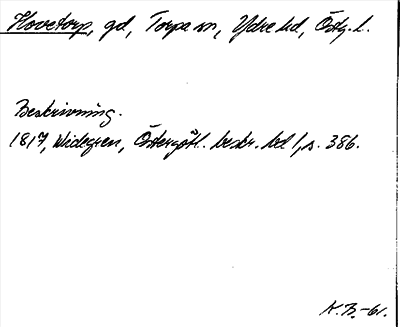 Hovetorp, gd, Torpa sn, Ydre hd, Östg. l.
Beskrivning.
1817, Widegren, Östergötl. beskr. bd 1, s. 386.
K.B.-61.